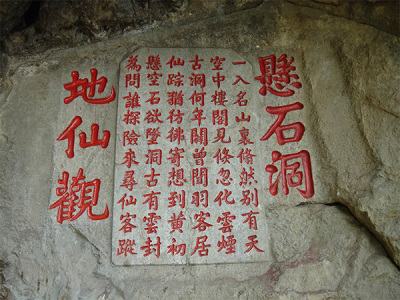 懸石洞
一入名山裏翛然別有天
空中樓閣見倏忽化雲煙
古洞何年闢曾聞羽客居
仙踪猶彷彿寄想到黃初
懸空石欲墜洞古有雲封
為問誰探險來尋仙客蹤
地仙觀